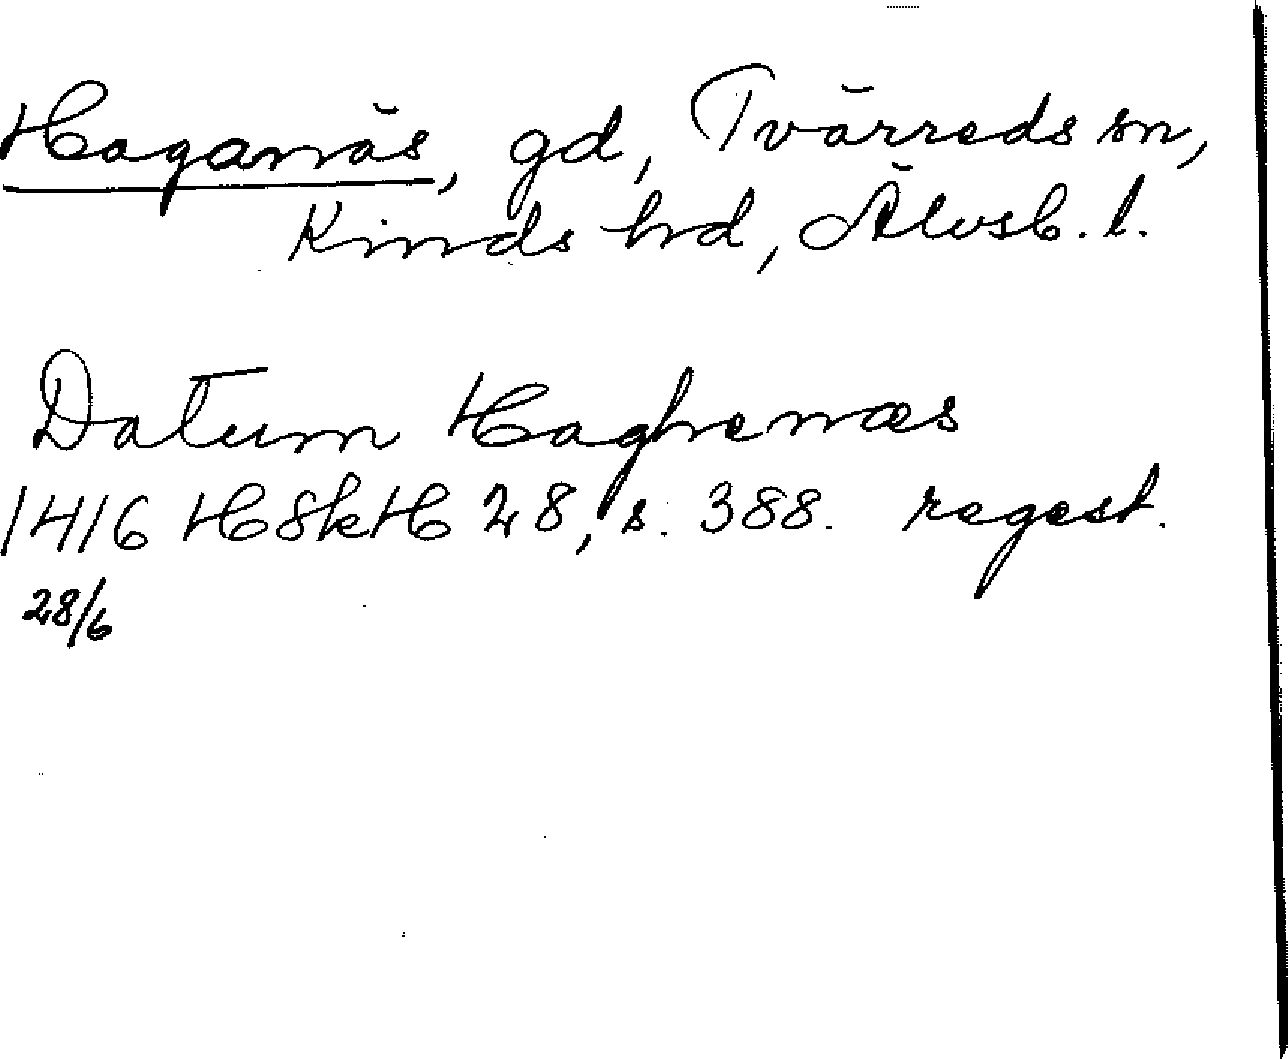 Haganäs, gd, Tvärreds sn,
Kinds hd, Älvsb. l.
Datum Haghenæs
1416 HSkH 28, s. 388. regest.
28/6